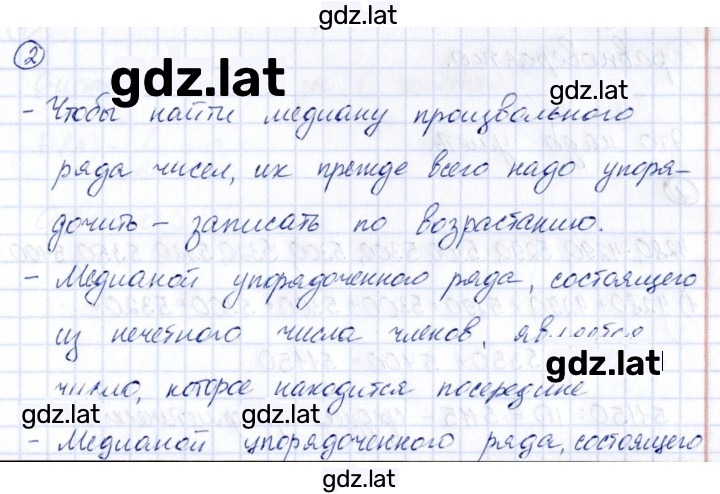 gdz.lat
2
gdz.lat
- Чтобы найти медиану произвольного
ряда чисел, их прежде всего надо упоря-
дочить - записать по возрастанию.
- Медианой упорядоченного ряда, состоящего
из нечетного числа членов, является
gdz.lat
число, которое находится посередине
gdz.lat gdz.lat
- Медианой упорядоченного ряда, состоящего
gdz.lat